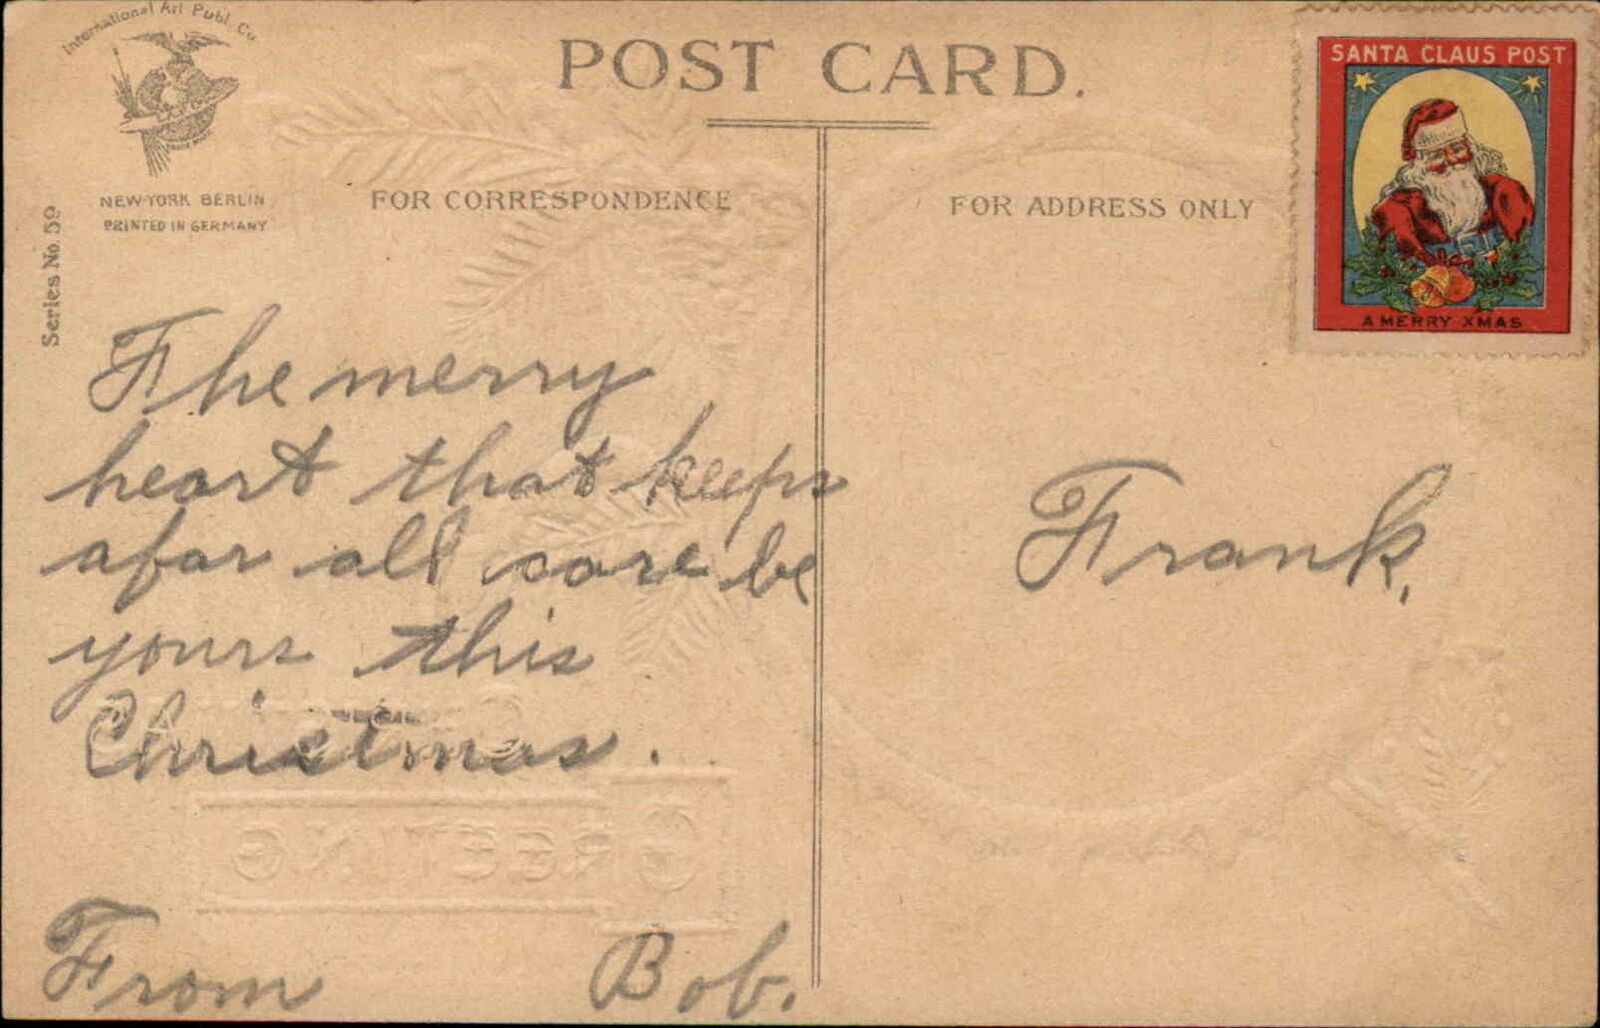 International Art Publ. Co
POST CARD.
SANTA CLAUS POST
A MERRY XMAS
NEW-YORK BERLIN
PRINTED IN GERMANY
Series No. 59
FOR CORRESPONDENCE
FOR ADDRESS ONLY
The merry
heart that keeps
afar all care be
yours this
Christmas.
From Bob.
Frank.
GREETING